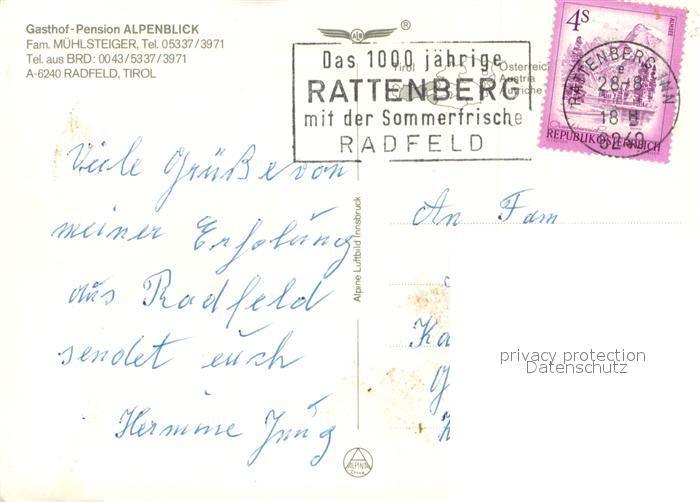 Gasthof-Pension ALPENBLICK
Fam. MÜHLSTEIGER, Tel. 05337/3971
Tel. aus BRD: 0043/5337/3971
A-6240 RADFELD, TIROL
®
Das 1000 jährige
RATTENBERG
mit der Sommerfrische
RADFELD
Tirol
Österreich
Austria
4S
ALMSEE
REPUBLIK ÖSTERREICH
RATTENBERG INN
28-8
18 H
6240
Viele Grüße von
meiner Erholung
aus Radfeld
sendet euch
Hermine Jung
Alpine Luftbild Innsbruck
ALPINA
An Fam
Ka
G
privacy protection
Datenschutz